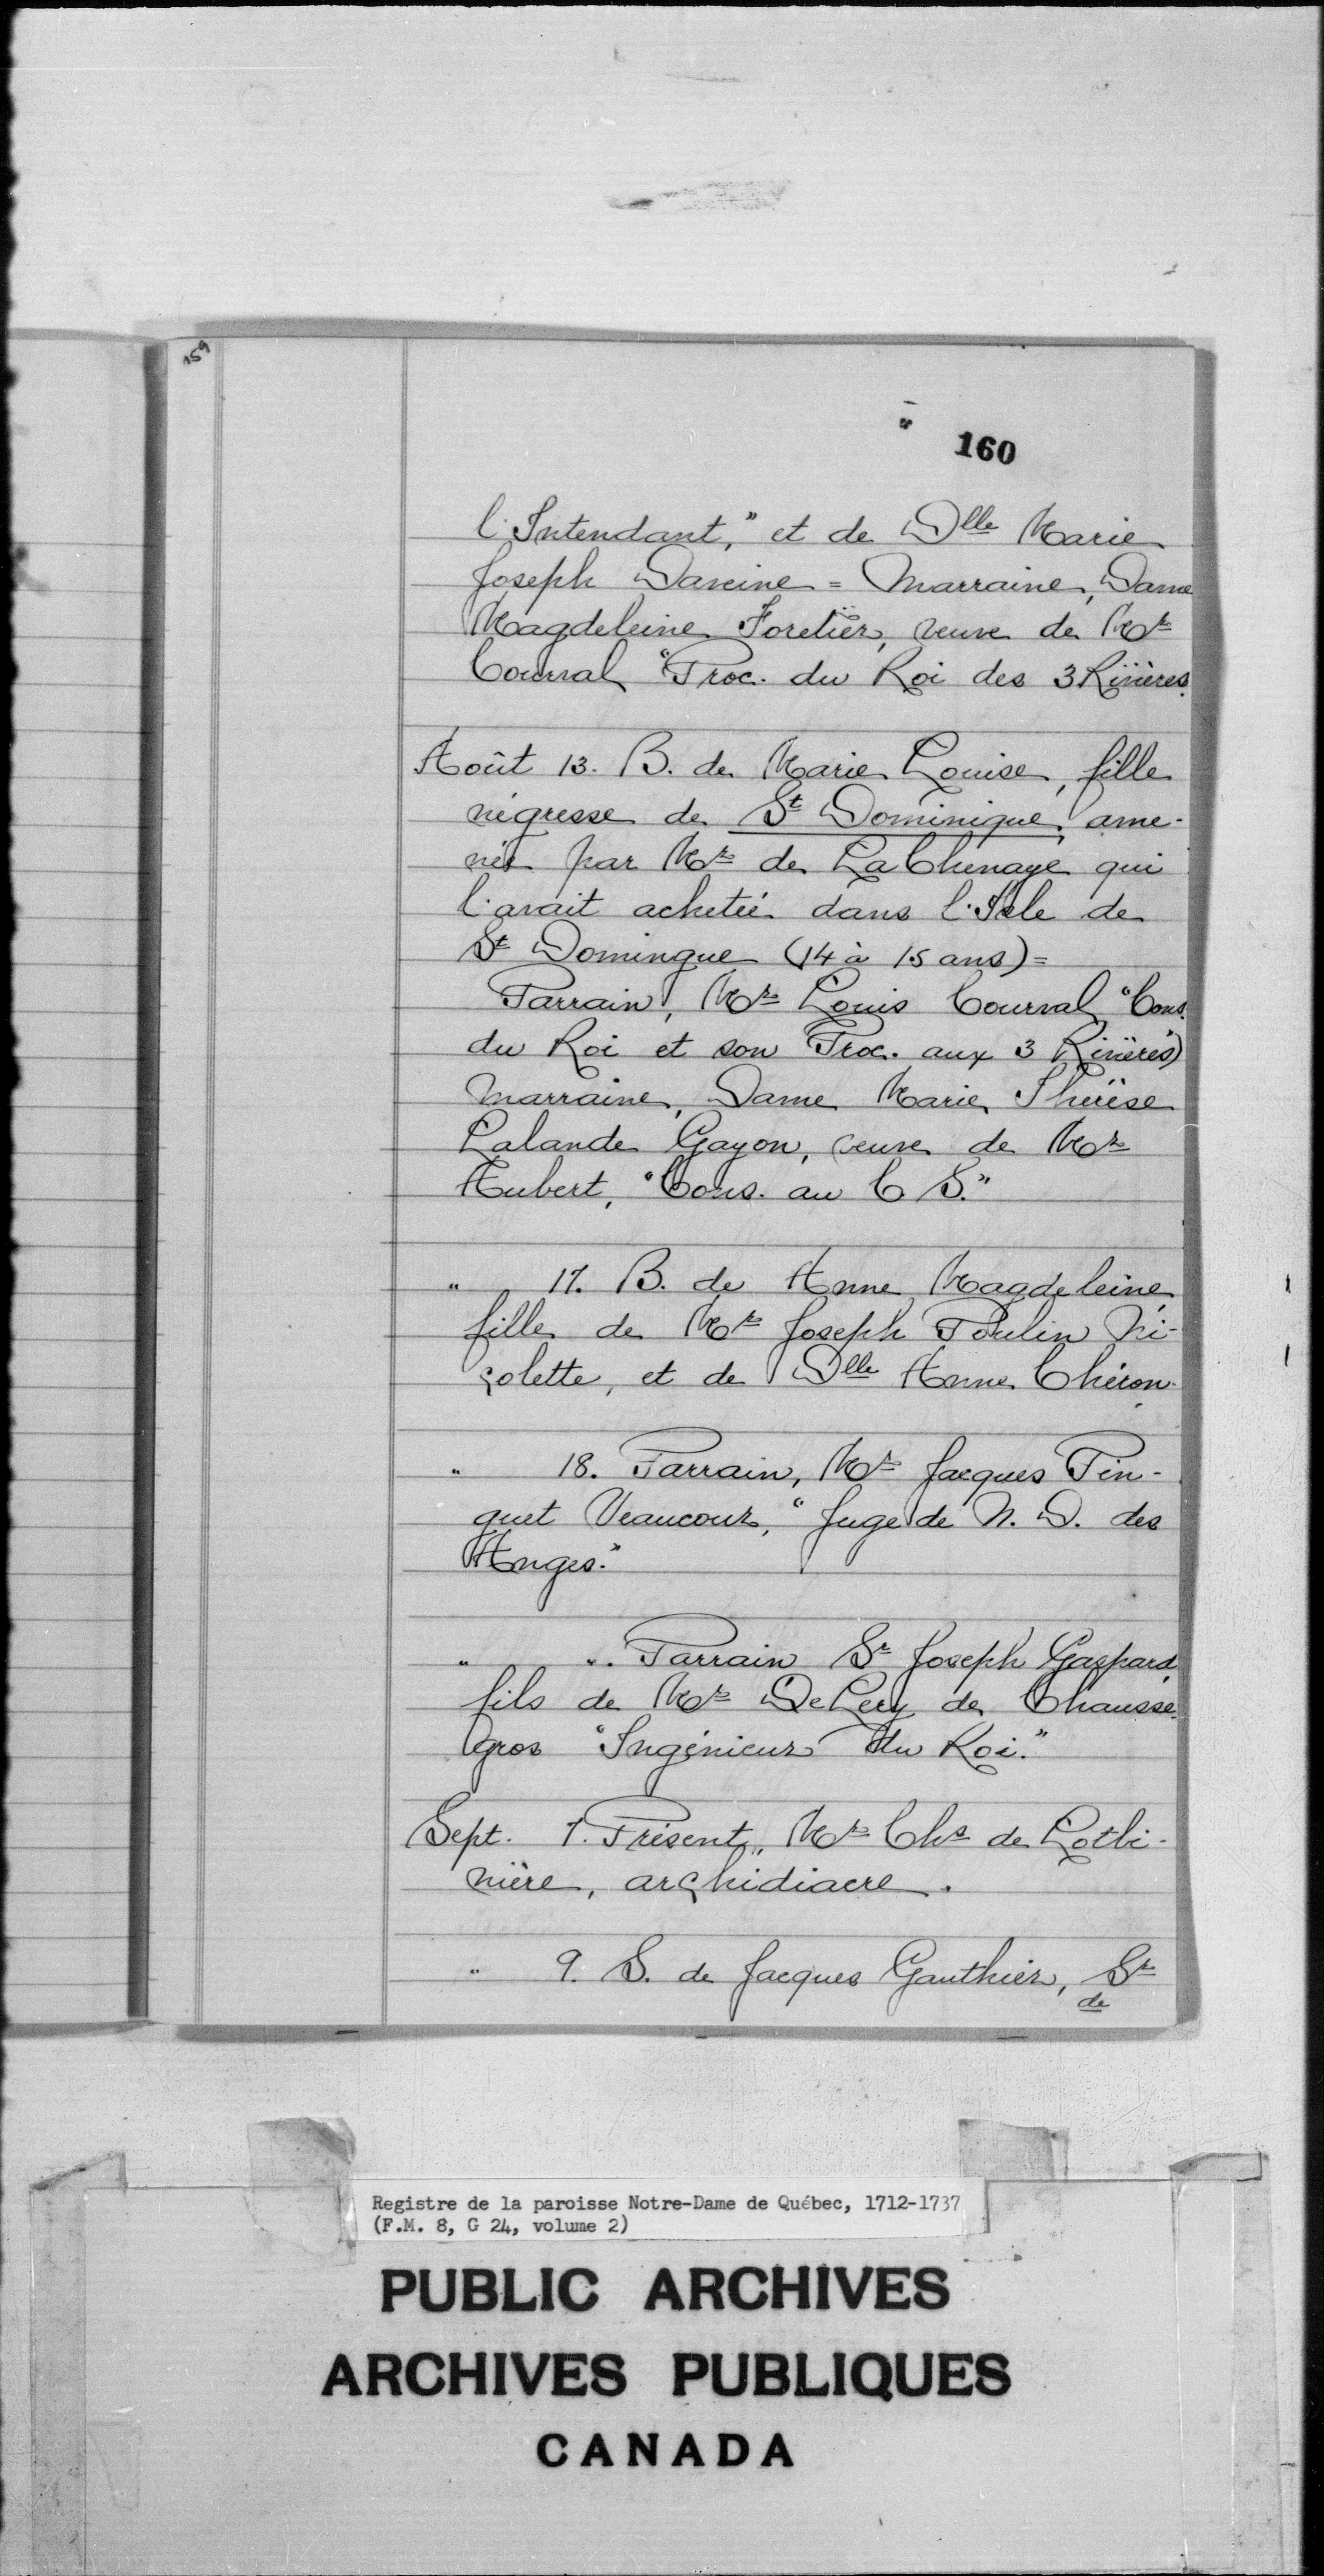 159
160
l'Intendant," et de Dlle Marie
Joseph Daveine = Marraine, Dame
Magdeleine Foretier, veuve de Mr
Courval "Proc. du Roi des 3 Rivières.
Août 13. B. de Marie Louise, fille
négresse de St Dominique, ame-
née par Mr de LaChenaye qui
l'avait achetée dans l'Isle de
St Domingue (14 à 15 ans) =
Parrain, Mr Louis Courval "Cons.
du Roi et son Proc. aux 3 Rivières")
Marraine, Dame Marie Thérèse
Lalande Gayon, veuve de Mr
Aubert, "Cons. au C S."
" 17. B. de Anne Magdeleine,
fille de Mr Joseph Poulin Ni-
colette, et de Dlle Anne Chéron.
" 18. Parrain, Mr Jacques Pin-
guet Veaucour, "Juge de N. D. des
Anges."
" ". Parrain Sr Joseph Gaspard,
fils de Mr DeLery de Chausse-
gros "Ingénieur du Roi."
Sept. 7. Présent, Mr Chs de Lotbi-
nière, archidiacre.
" 9. S. de Jacques Gauthier, Sr
de
Registre de la paroisse Notre-Dame de Québec, 1712-1737
(F.M. 8, G 24, volume 2)
PUBLIC ARCHIVES
ARCHIVES PUBLIQUES
CANADA